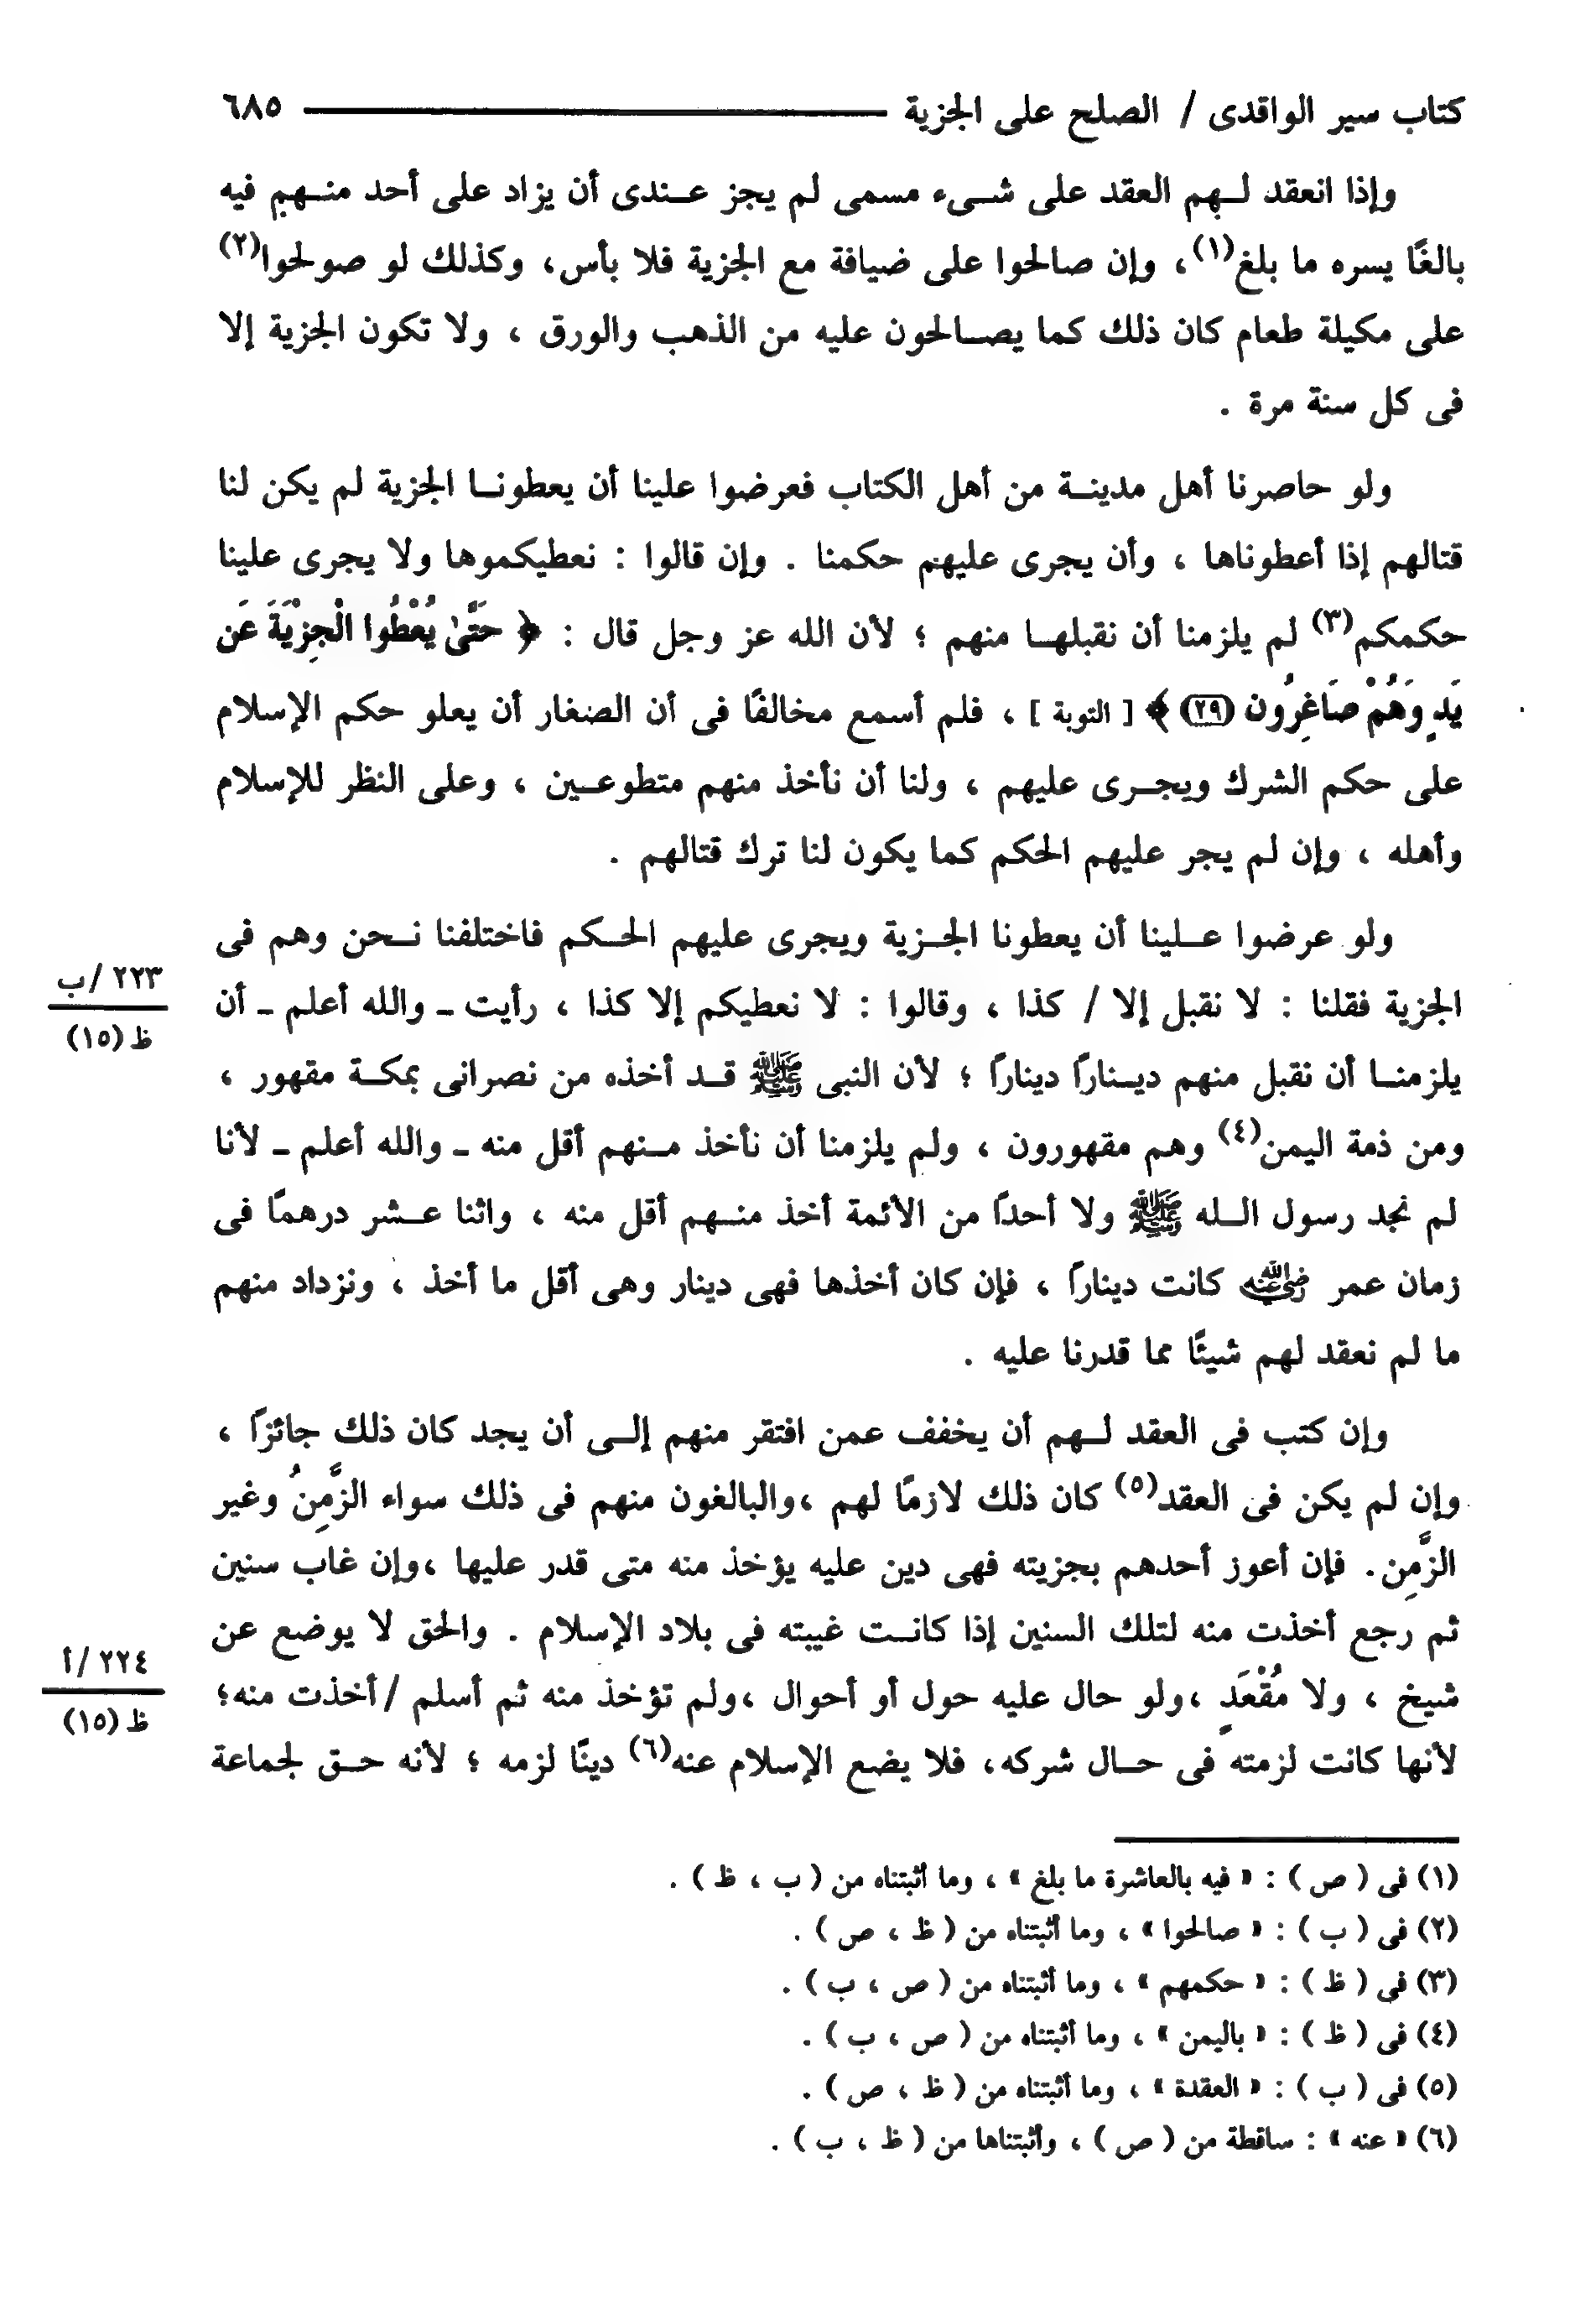 كتاب سير الواقدى / الصلح على الجزية ٦٨٥
وإذا انعقد لهم العقد على شىء مسمى لم يجز عندى أن يزاد على أحد منهم فيه
بالغًا يسره ما بلغ(١)، وإن صالحوا على ضيافة مع الجزية فلا بأس، وكذلك لو صولحوا(٢)
على مكيلة طعام كان ذلك كما يصالحون عليه من الذهب والورق ، ولا تكون الجزية إلا
فى كل سنة مرة .
ولو حاصرنا أهل مدينة من أهل الكتاب فعرضوا علينا أن يعطونا الجزية لم يكن لنا
قتالهم إذا أعطوناها ، وأن يجرى عليهم حكمنا . وإن قالوا : نعطيكموها ولا يجرى علينا
حكمكم(٣) لم يلزمنا أن نقبلها منهم ؛ لأن الله عز وجل قال : ﴿ حَتَّىٰ يُعْطُوا الْجِزْيَةَ عَن
يَدٍ وَهُمْ صَاغِرُون (٢٩) ﴾ [ التوبة ] ، فلم أسمع مخالفًا فى أن الصغار أن يعلو حكم الإسلام
على حكم الشرك ويجرى عليهم ، ولنا أن نأخذ منهم متطوعين ، وعلى النظر للإسلام
وأهله ، وإن لم يجر عليهم الحكم كما يكون لنا ترك قتالهم .
ولو عرضوا علينا أن يعطونا الجزية ويجرى عليهم الحكم فاختلفنا نحن وهم فى
٢٢٣ /ب
الجزية فقلنا : لا نقبل إلا / كذا ، وقالوا : لا نعطيكم إلا كذا ، رأيت ـ والله أعلم ـ أن
ظ (١٥)
يلزمنا أن نقبل منهم دينارًا دينارًا ؛ لأن النبى ﷺ قد أخذه من نصرانى بمكة مقهور ،
ومن ذمة اليمن(٤) وهم مقهورون ، ولم يلزمنا أن نأخذ منهم أقل منه ـ والله أعلم ـ لأنا
لم نجد رسول الله ﷺ ولا أحدًا من الأئمة أخذ منهم أقل منه ، واثنا عشر درهمًا فى
زمان عمر رضي الله عنه كانت دينارًا ، فإن كان أخذها فهى دينار وهى أقل ما أخذ ، ونزداد منهم
ما لم نعقد لهم شيئًا مما قدرنا عليه .
وإن كتب فى العقد لهم أن يخفف عمن افتقر منهم إلى أن يجد كان ذلك جائزًا ،
وإن لم يكن فى العقد(٥) كان ذلك لازمًا لهم ،والبالغون منهم فى ذلك سواء الزَّمِنُ وغير
الزَّمِن. فإن أعوز أحدهم بجزيته فهى دين عليه يؤخذ منه متى قدر عليها ،وإن غاب سنين
ثم رجع أخذت منه لتلك السنين إذا كانت غيبته فى بلاد الإسلام . والحق لا يوضع عن
٢٢٤ /أ
شيخ ، ولا مُقْعَدٍ ،ولو حال عليه حول أو أحوال ،ولم تؤخذ منه ثم أسلم /أخذت منه؛
ظ (١٥)
لأنها كانت لزمته فى حال شركه، فلا يضع الإسلام عنه(٦) دينًا لزمه ؛ لأنه حق لجماعة
(١) فى ( ص ) : « فيه بالعاشرة ما بلغ » ، وما أثبتناه من ( ب ، ظ ) .
(٢) فى ( ب ) : « صالحوا » ، وما أثبتناه من ( ظ ، ص ) .
(٣) فى ( ظ ) : « حكمهم » ، وما أثبتناه من ( ص ، ب ) .
(٤) فى ( ظ ) : « باليمن » ، وما أثبتناه من ( ص ، ب ) .
(٥) فى ( ب ) : « العقدة » ، وما أثبتناه من ( ظ ، ص ) .
(٦) « عنه » : ساقطة من ( ص ) ، وأثبتناها من ( ظ ، ب ) .